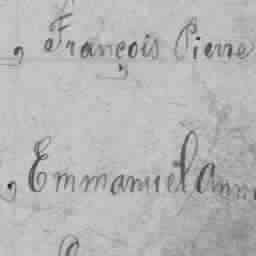 , François Pierre
, Emmanuel Anne